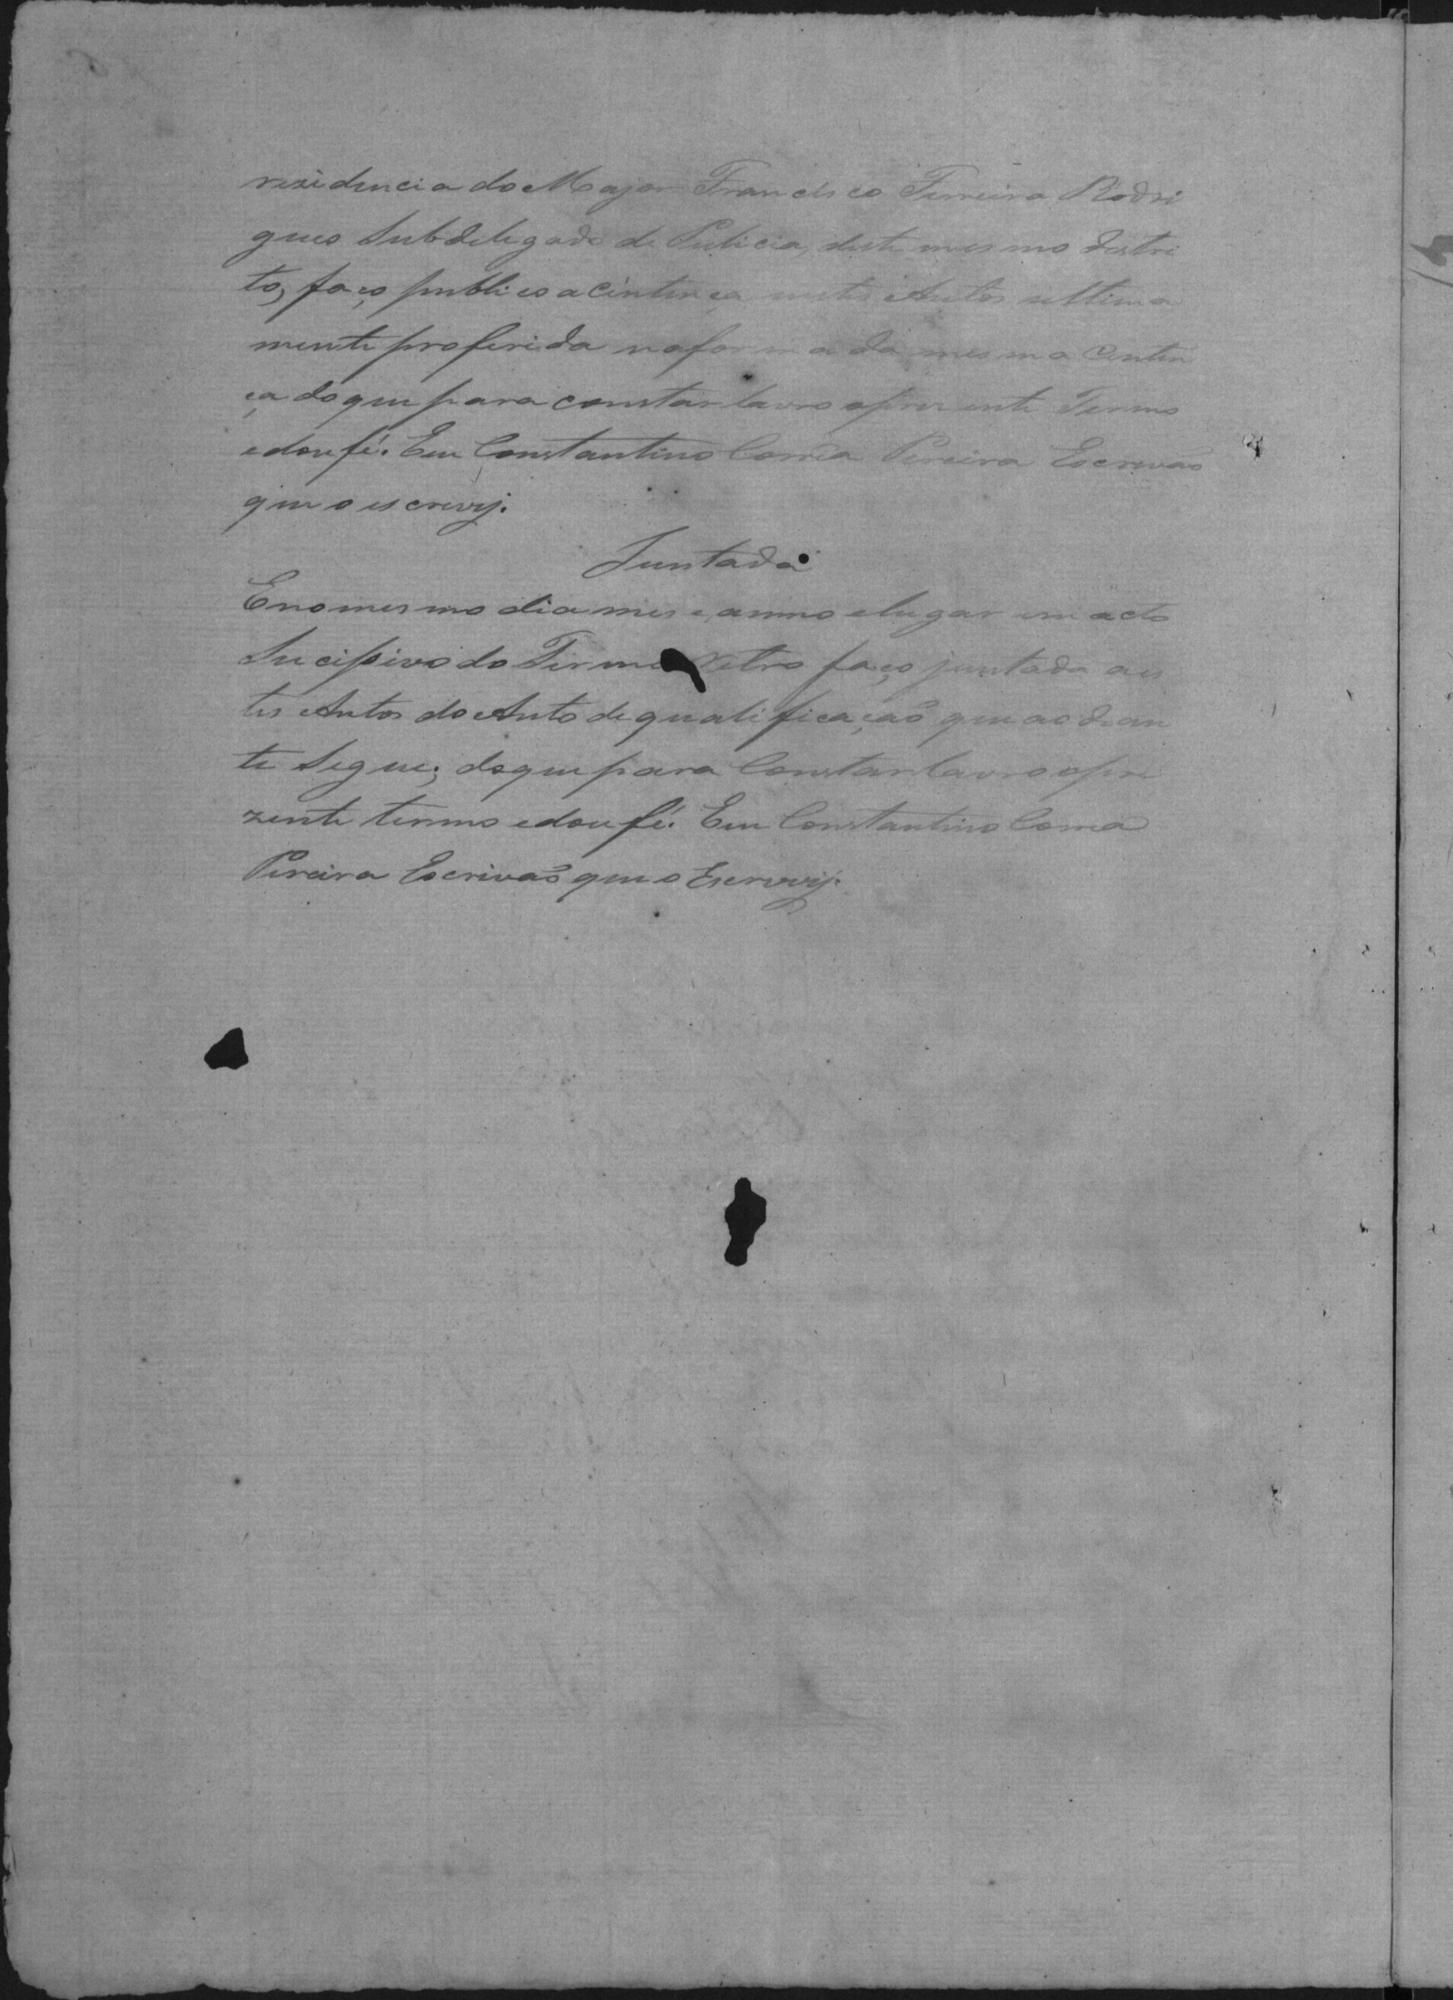 rezidencia do Major Francisco Ferreira Rodri
gues Subdelegado de Pulicia, deste mesmo destri
to, faço publico a Cintença nestes Autos ultima
mente proferida na forma da mesma Centen
ça do que para constar lavro o prezente Termo
e dou fé. Eu Constantino Corrêa Pereira Escrivão
que o escrevy.
Juntada
E no mesmo dia mes e anno e lugar em acto
Sucipivo do Termo retro faço juntada a es
tes Autos do Auto de qualificação que ao dian
te Segue; do que para Constar lavro o pre
zente termo e dou fé. Eu Constantino Correa
Pereira Escrivaõ que o Escrevy.